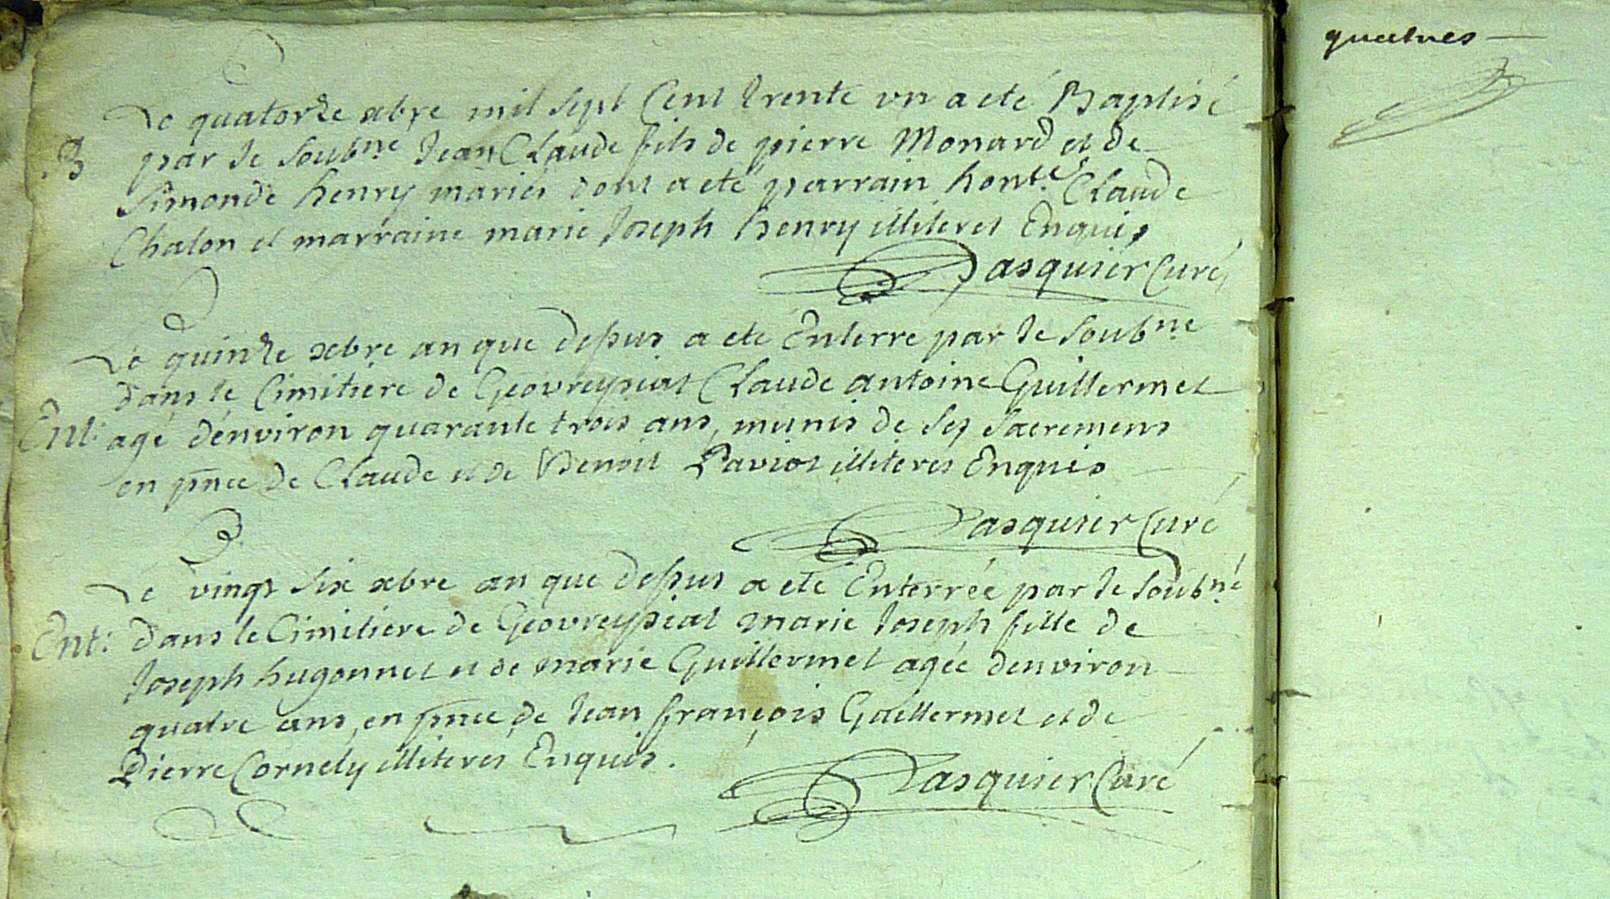 quatres
Le quatorze xbre mil sept Cent trente un a eté Baptisé
B
par le Soubne Jean Claude fils de pierre Monard et de
Simonde henry mariés dont a eté parrain hont.e Claude
Chalon et marraine marie Joseph henry illiteres Enquis
Pasquier Curé
Le quinze xbre an que dessus a eté Enterré par le Soubne
dans le Cimitiere de Geovreysiat Claude antoine Guillermet
Ent: agé d'environ quarante trois ans, munis de Ses Sacremens
en pnce de Claude et de Benoit Paviot illiteres Enquis
Pasquier Curé
Le vingt Six xbre an que dessus a eté Enterrée par le Soubné
Ent: dans le Cimitiere de Geovreysiat marie Joseph fille de
Joseph hugonnet et de marie Guillermet agée denviron
quatre ans, en pnce de Jean françois Guillermet et de
Pierre Cornely illiteres Enquis.
Pasquier Curé